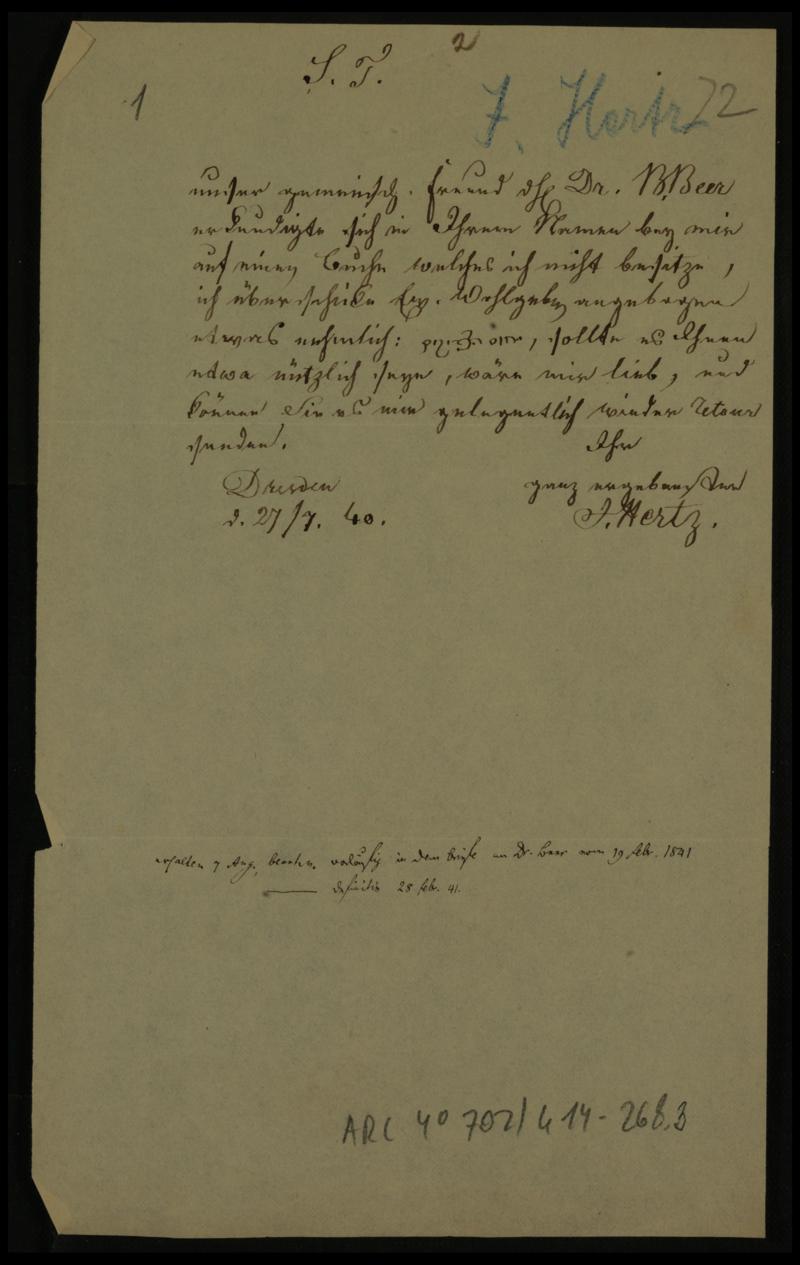 2
S. T.
1
J. Hertz
72
unser gemeinsch. Freund Dr. B. Beer
erkundigte sich in Ihrem Namen bey mir
auf einen Buche welches ich nicht besitze,
ich überschicke Ew. Wohlgeb. angebogen
etwas nehmlich: , sollte es Ihnen
etwa nützlich seyn, wäre mir lieb, und
können Sie es mir gelegentlich wieder retour
senden.
Ihr
Dresden
ganz ergebenster
d. 27/7. 40.
J. Hertz.
erhalten 7 Aug. beantw. vorläufig in dem Briefe an Dr. Beer vom 19 febr. 1841
definitiv 28 febr. 41.
ARC 4° 792/G 14-268.3